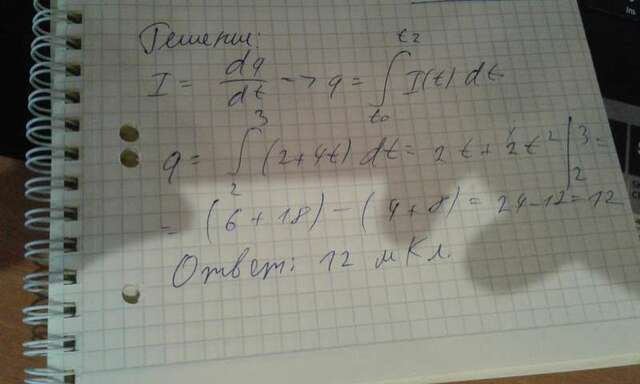 Решение:
I = dq/dt -> q = ∫_{t0}^{t2} I(t) dt
q = ∫_{2}^{3} (2+4t) dt = 2t + 2t² |_{2}^{3} =
= (6+18) - (4+8) = 24-12 = 12
Ответ: 12 мКл.